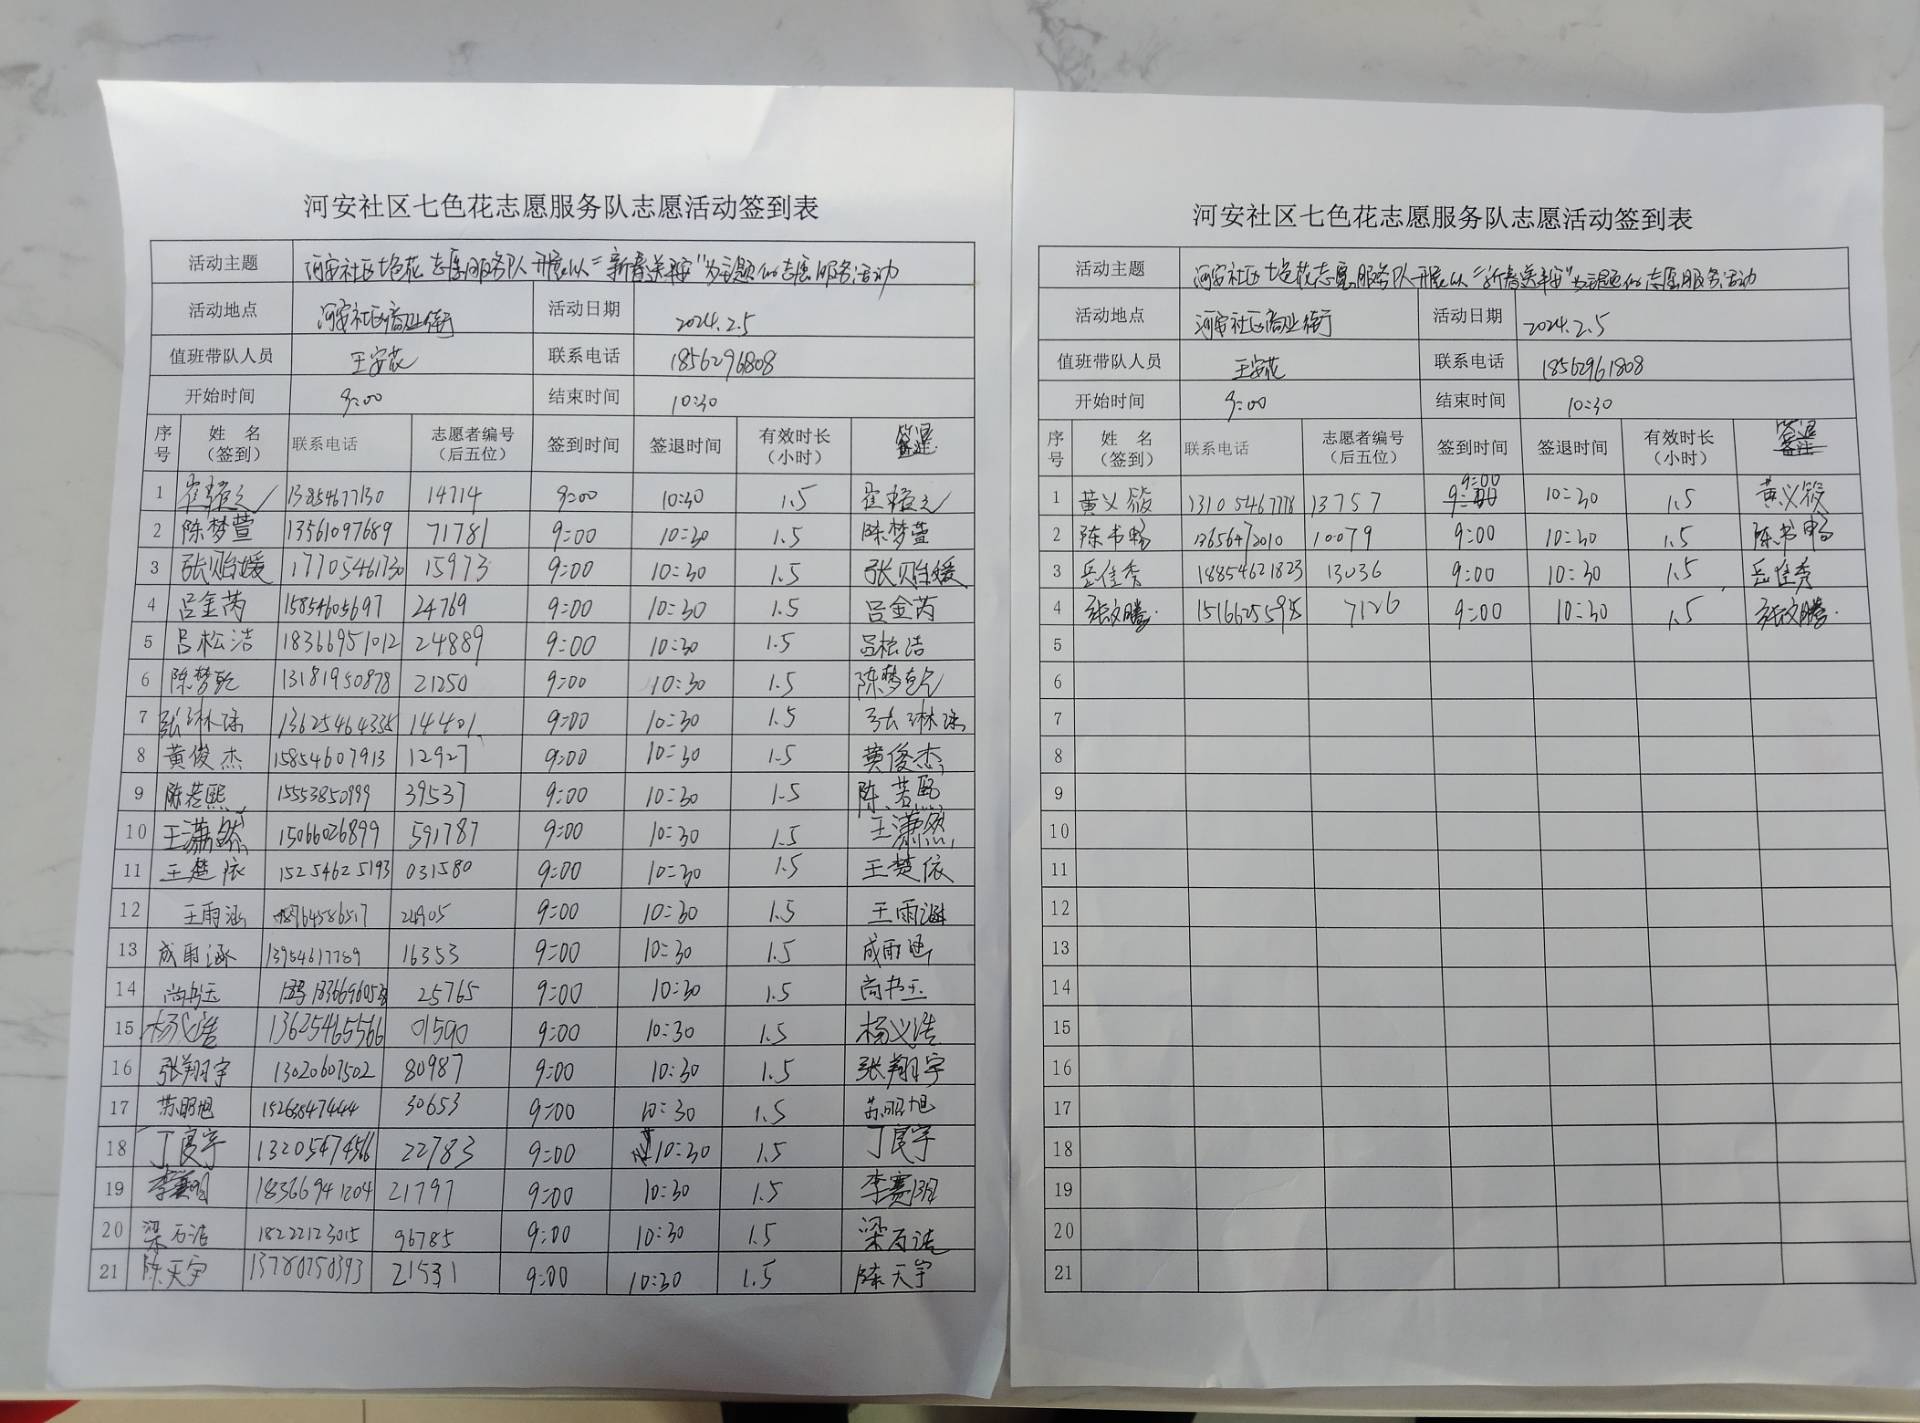 河安社区七色花志愿服务队志愿活动签到表
活动主题 河安社区七色花志愿服务队开展以"新春送平安"为主题的志愿服务活动
活动地点 河安社区商业街 活动日期 2024.2.5
值班带队人员 王安花 联系电话 18562961808
开始时间 9:00 结束时间 10:30
序号 姓 名（签到） 联系电话 志愿者编号（后五位） 签到时间 签退时间 有效时长（小时） 签退
1 13854677130 14714 9:00 10:30 1.5
2 陈梦萱 13561097689 71781 9:00 10:30 1.5 陈梦萱
3 张贻媛 17705461730 15973 9:00 10:30 1.5 张贻媛
4 吕金芮 15854605697 24769 9:00 10:30 1.5 吕金芮
5 吕松洁 18366951012 24889 9:00 10:30 1.5 吕松洁
6 陈梦乾 13181950878 21250 9:00 10:30 1.5 陈梦乾
7 张琳 13625464335 14401 9:00 10:30 1.5 张琳
8 黄俊杰 15854607913 12927 9:00 10:30 1.5 黄俊杰
9 陈若熙 15553850999 39537 9:00 10:30 1.5 陈若熙
10 王潇然 15066026899 591787 9:00 10:30 1.5 王潇然
11 王楚依 15254625193 031580 9:00 10:30 1.5 王楚依
12 王雨涵 24905 9:00 10:30 1.5 王雨涵
13 成雨涵 13954617789 16353 9:00 10:30 1.5 成雨涵
14 尚书玉 25765 9:00 10:30 1.5 尚书玉
15 杨义浩 13625465566 01590 9:00 10:30 1.5 杨义浩
16 张翔宇 13020607502 80987 9:00 10:30 1.5 张翔宇
17 苏明旭 15263847444 30653 9:00 10:30 1.5 苏明旭
18 丁良宇 13205474566 22783 9:00 10:30 1.5 丁良宇
19 李赛明 18366941204 21797 9:00 10:30 1.5 李赛明
20 梁石浩 18222123015 96785 9:00 10:30 1.5 梁石浩
21 陈天宇 21531 9:00 10:30 1.5 陈天宇
河安社区七色花志愿服务队志愿活动签到表
活动主题 河安社区七色花志愿服务队开展以"新春送平安"为主题的志愿服务活动
活动地点 河安社区商业街 活动日期 2024.2.5
值班带队人员 王安花 联系电话 18562961808
开始时间 9:00 结束时间 10:30
序号 姓 名（签到） 联系电话 志愿者编号（后五位） 签到时间 签退时间 有效时长（小时） 签退
1 黄义筱 13105467778 13757 9:00 10:30 1.5 黄义筱
2 陈书畅 13656472010 10079 9:00 10:30 1.5 陈书畅
3 岳佳秀 18854621823 13036 9:00 10:30 1.5 岳佳秀
4 张文腾 7126 9:00 10:30 1.5 张文腾
5
6
7
8
9
10
11
12
13
14
15
16
17
18
19
20
21